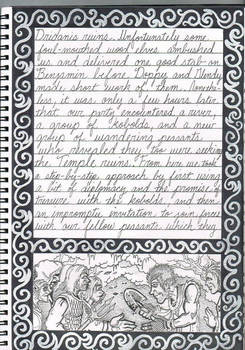 Dridanis ruins. Unfortunately some
foul-mouthed wood elves ambushed
us and delivered one good stab on
Benjamin before Doppy and Mindy
made short work of them. Nonethe-
less, it was only a few hours later
that our party encountered a river,
a group of kobolds, and a new
group of wandering peasants
who revealed they too were seeking
the Temple ruins. From here we took
a step-by-step approach by first using
a bit of diplomacy and the promise of
treasure with the kobolds, and then
an impromptu invitation to join forces
with our fellow peasants which they